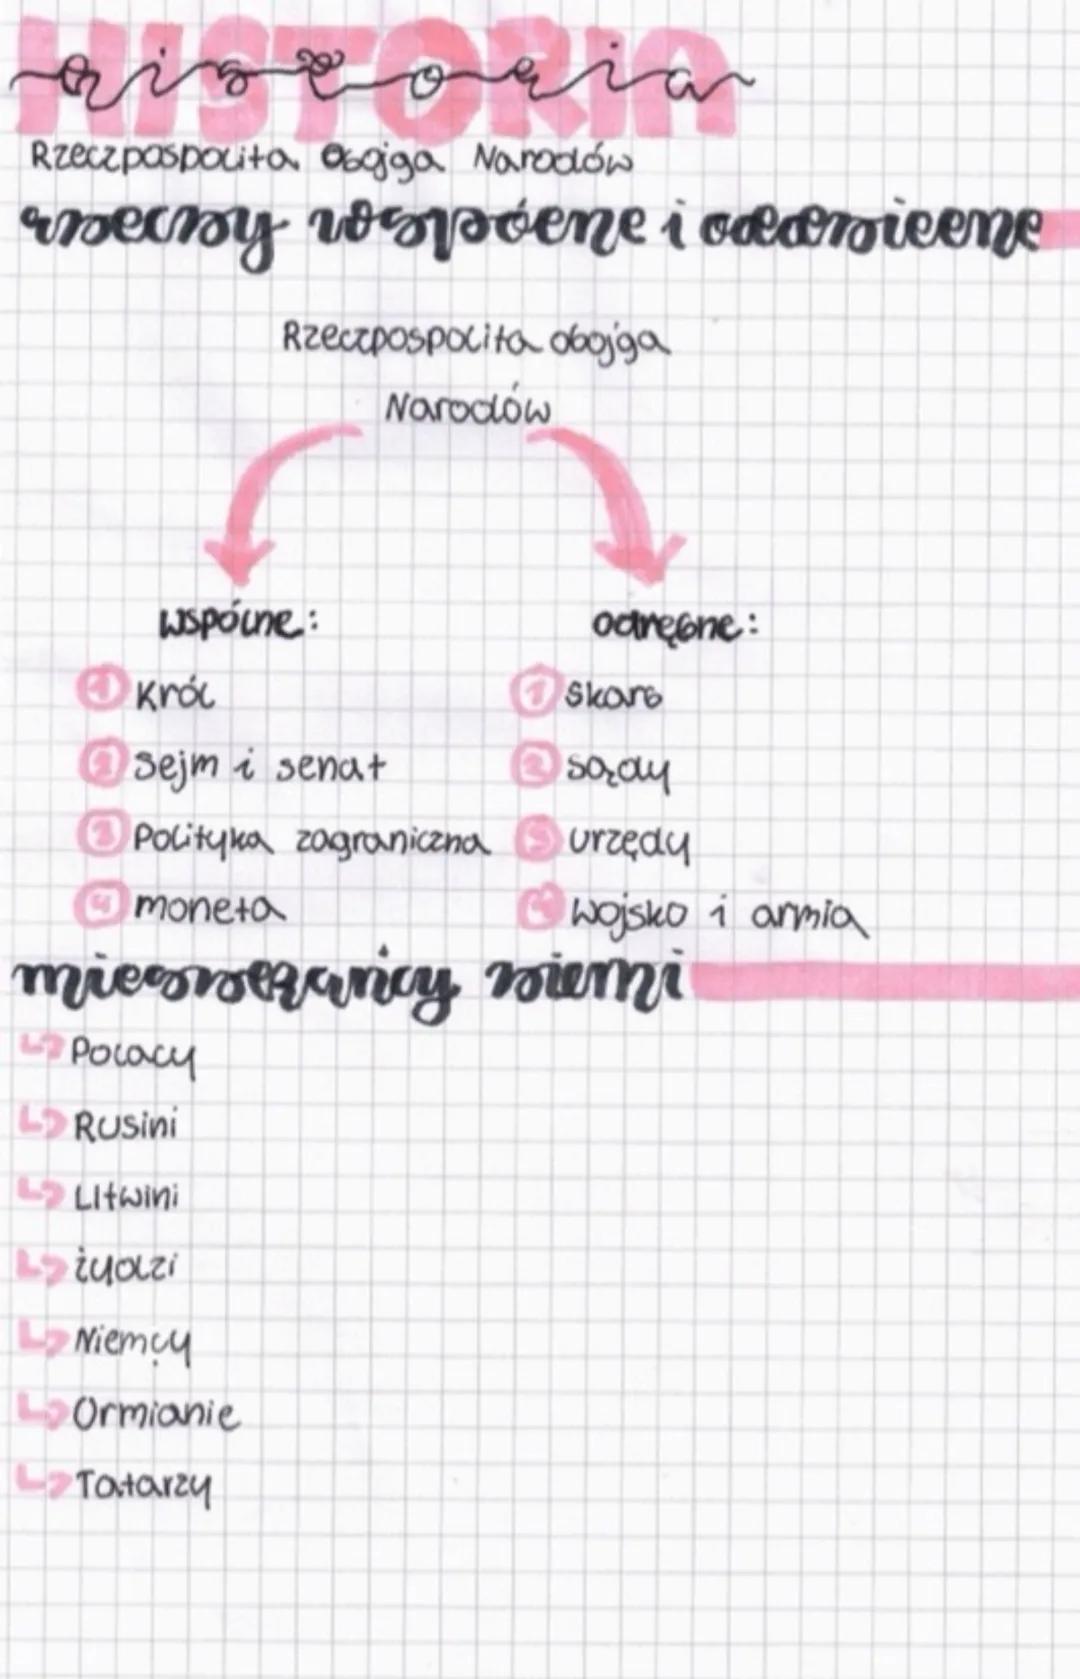 HISTORIA
historia
Rzeczpospolita Obojga Narodów
rzeczy wspólne i oddzielne
Rzeczpospolita obojga
Narodów
wspólne:
odrębne:
1 Król
1 skarb
2 Sejm i senat
2 sądy
3 Polityka zagraniczna
3 urzędy
4 moneta
4 wojsko i armia
mieszkańcy ziemi
Polacy
Rusini
Litwini
żydzi
Niemcy
Ormianie
Tatarzy